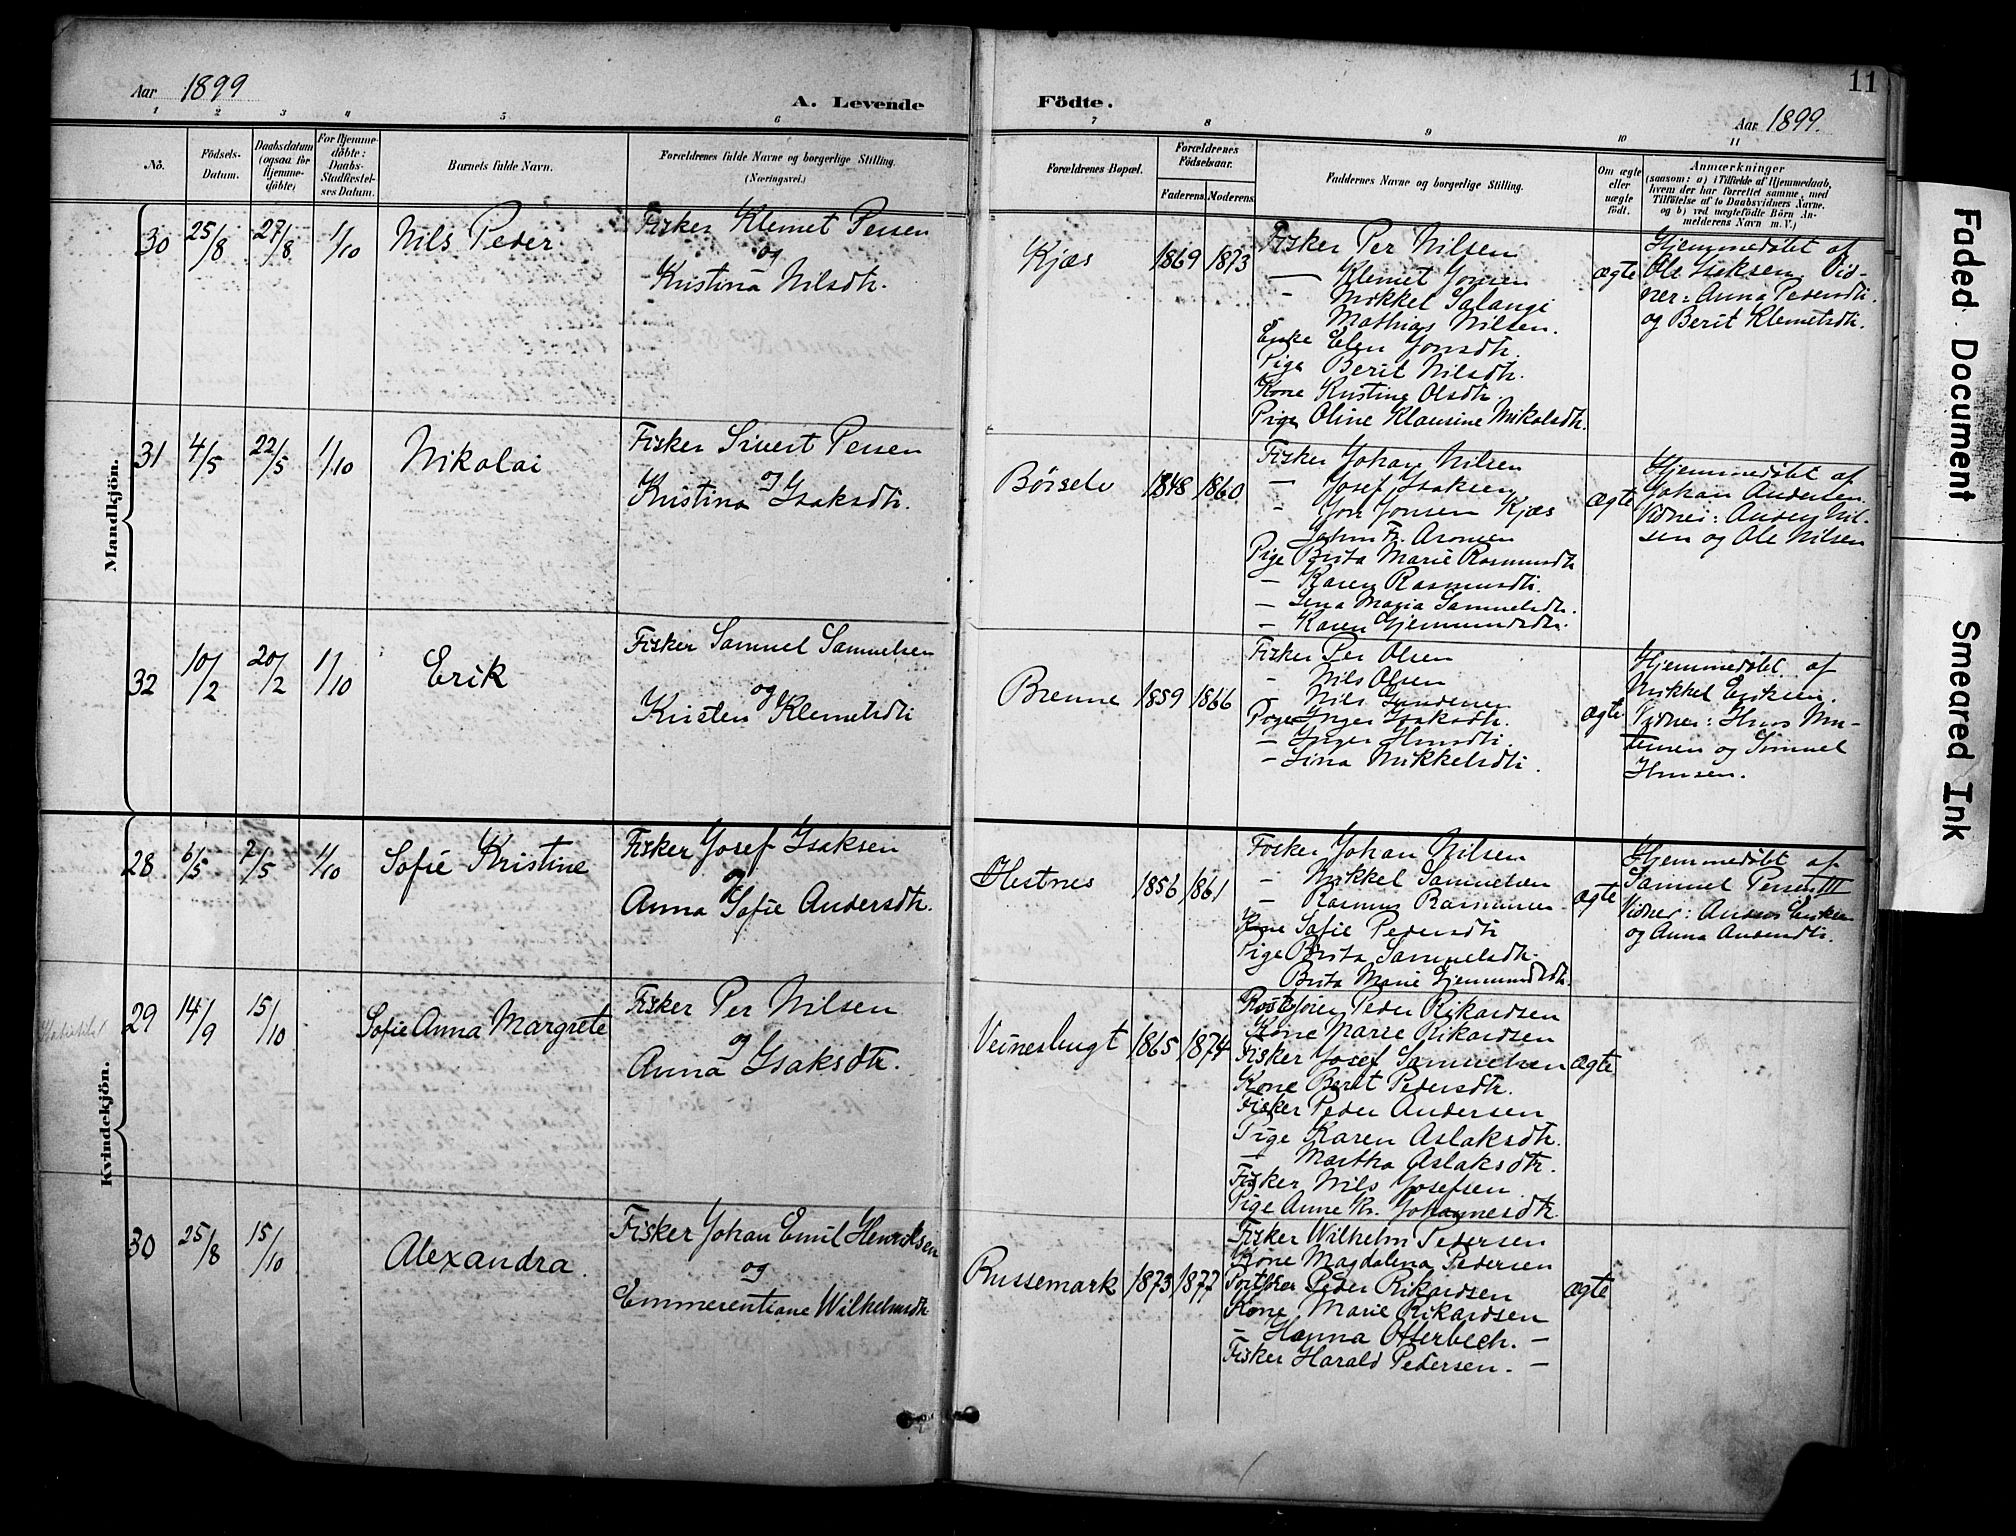 Aar 1899
A. Levende
Födte.
Aar 1899.
11
1 2 3 4 5 6 7 8 9 10 11
No.
Födsels-
Datum.
Daabsdatum
(ogsaa for
Hjemme-
döbte)
For Hjemme-
döbte:
Daabs-
Stadfæstel-
ses Datum.
Barnets fulde Navn.
Forældrenes fulde Navne og borgerlige Stilling.
(Næringsvei.)
Forældrenes Bopæl.
Forældrenes
Födselsaar.
Faderens
Moderens
Faddernes Navne og borgerlige Stilling.
Om ægte
eller
uægte
födt.
Anmærkninger
(saasom: a) i Tilfælde af Hjemmedaab,
hvem der har forrettet samme, med
Tilföielse af to Daabsvidners Navne.
og b) ved uægtefödte Börn An-
melderens Navn m. V.)
Mandkjön.
30 25/8 27/8 1/10 Nils Peder
Fisker Klemet Persen
og
Kristina Nilsdtr.
Kjæs 1869 1873
Fisker Per Nilsen
— Klemet Jonsen
- Mikkel Salangi
Mathias Nilsen.
Enke Elen Jonsdtr.
Pige Berit Nilsdtr.
Kone Kristine Olsdtr
Pige Oline Klausine Mikalsdtr.
ægte
Hjemmedøbt af
Ole Isaksen. Vid-
ner: Anna Pedersdtr.
og Berit Klemetsdtr.
31 4/5 22/5 1/10 Nikolai
Fisker Sivert Persen
og
Kristina Isaksdtr.
Børselv 1848 1860
Fisker Johan Nilsen
— Josef Isaksen
- Jon Jonsen Kjæs
Johan Fr. Aronsen
Pige Brita Marie Rasmusdtr
— Karen Rasmusdtr.
— Lina Maria Samuelsdtr.
— Karen Gjermundsdtr.
ægte
Hjemmedøbt af
Johan Andersen.
Vidner: Anders Nil-
sen og Ole Nilsen
32 10/2 20/2 1/10 Erik
Fisker Samuel Samuelsen
og
Kristen Klemetsdtr
Brenne 1859 1866
Fisker Per Olsen
- Nils Olsen
- Nils
Pige Inger Isaksdtr.
— Inger Hansdtr.
— Lina Mikkelsdtr.
ægte
Hjemmedøbt af
Mikkel Eriksen.
Vidner: Hans
og Samuel
Hansen.
Kvindekjön.
28 6/5 7/5 1/10 Sofie Kristine
Fisker Josef Isaksen
og
Anna Sofie Andersdtr.
Hestnes 1856 1861
Fisker Johan Nilsen
- Mikkel Samuelsen
- Rasmus Rasmussen
Kone Sofie Pedersdtr
Pige Brita Samuelsdtr.
Brita Marie Gjermundsdtr.
ægte
Hjemmedøbt af
Samuel Persen III
Vidner: Anders Eriksen
og Anna Andersdtr.
29 14/9 15/10 Sofie Anna Margrete
Fisker Per Nilsen
og
Anna Isaksdtr.
Veinesbugt 1865 1874
Peder Rikardsen
Kone Marie Rikardsen
Fisker Josef Samuelsen
Kone Berit Pedersdtr.
Fisker Peder Andersen
Pige Karen Aslaksdtr.
— Martha Aslaksdtr.
Fisker Nils Josefsen
Pige Anne Kr. Johannesdtr.
ægte
30 25/8 15/10 Alexandra.
Fisker Johan Emil Henriksen
og
Emmerentiane Wilhelmsdtr
Russemark 1873 1877
Fisker Wilhelm Pedersen
Kone Magdalena Pedersen
Peder Rikardsen
Kone Marie Rikardsen
— Hanna Otterbech. —
Fisker Harald Pedersen. —
ægte
Faded Document
Smeared Ink